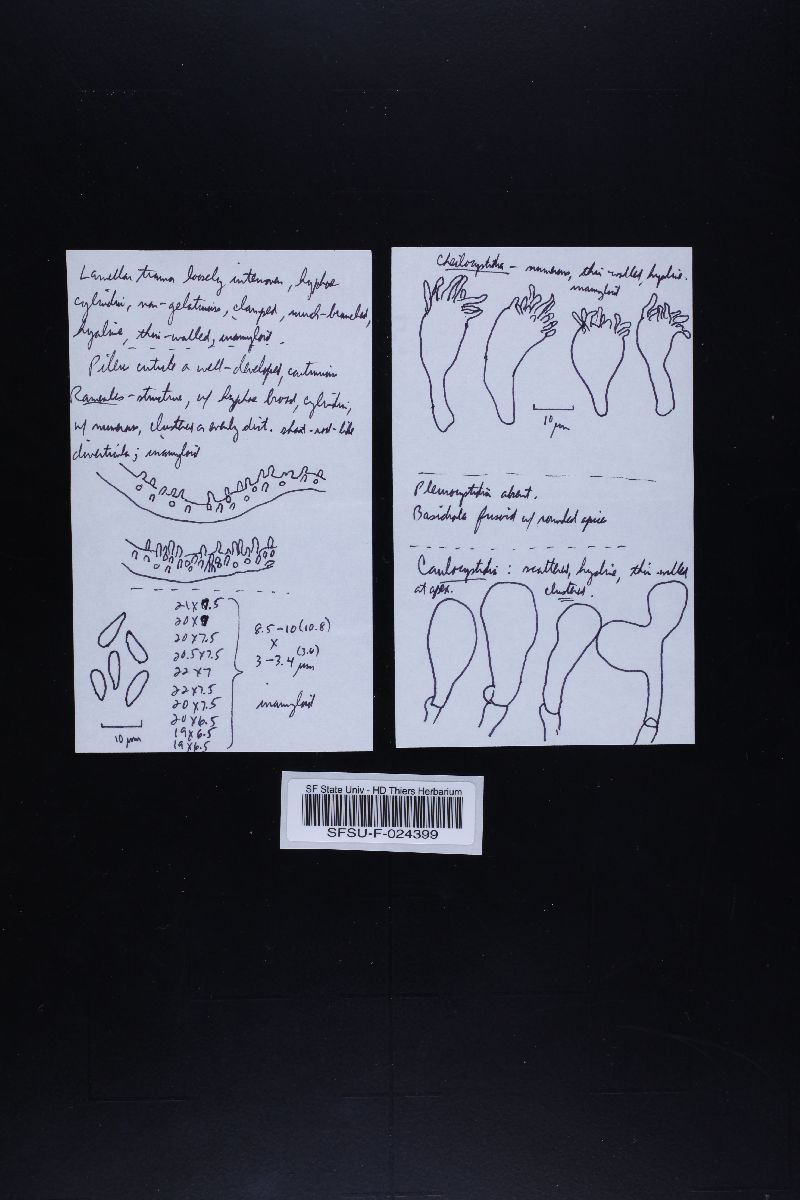 Lamellar trama loosely interwoven, hyphae
cylindric, non-gelatinous, clamped, much-branched,
hyaline, thin-walled, inamyloid.
Pileus cuticle a well-developed, continuous
Rameales-structure, w/ hyphae broad, cylindric,
w/ numerous, clustered or evenly dist. short-rod-like
diverticula; inamyloid
20 x 7.5
20.5 x 7.5
22 x 7
22 x 7.5
20 x 7.5
20 x 6.5
19 x 6.5
19 x 6.5
8.5-10(10.8)
x
3-3.4 (3.6) µm
inamyloid
10 µm
Cheilocystidia - numerous, thin-walled, hyaline.
inamyloid
10 µm
Pleurocystidia absent.
Basidiole fusoid w/ rounded apice
Caulocystidia: scattered, hyaline, thin-walled
at apex. clustered.
SF State Univ - HD Thiers Herbarium
SFSU-F-024399